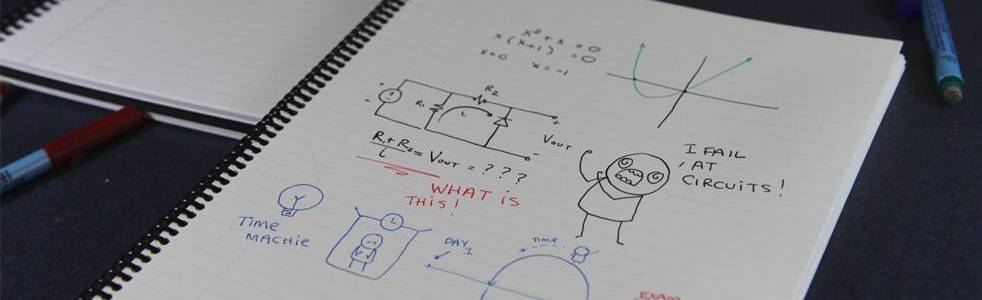 x²+x=0
x(x+1)=0
x=0 x=-1
R₂
R₁
L
+
-
VOUT
R₁+R₂
L
=VOUT=???
WHAT IS
THIS!
I FAIL
AT
CIRCUITS!
TIME
MACHIE
L
DAY 1
TIME
EXAM